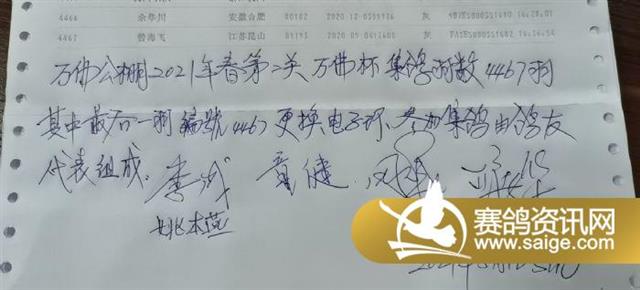 4466 余华川 安徽合肥 80102 2020-12-0555936 灰 16:28:01
4467 曾海飞 江苏昆山 灰 16:36:54
万佛公棚2021年春第二关 万佛杯 集鸽羽数 4467羽
其中最后一羽 编號4467更换电子环. 参加集鸽由鸽友
代表组成. 李成 章健
姚本燕
赛鸽资讯网
www.saige.com